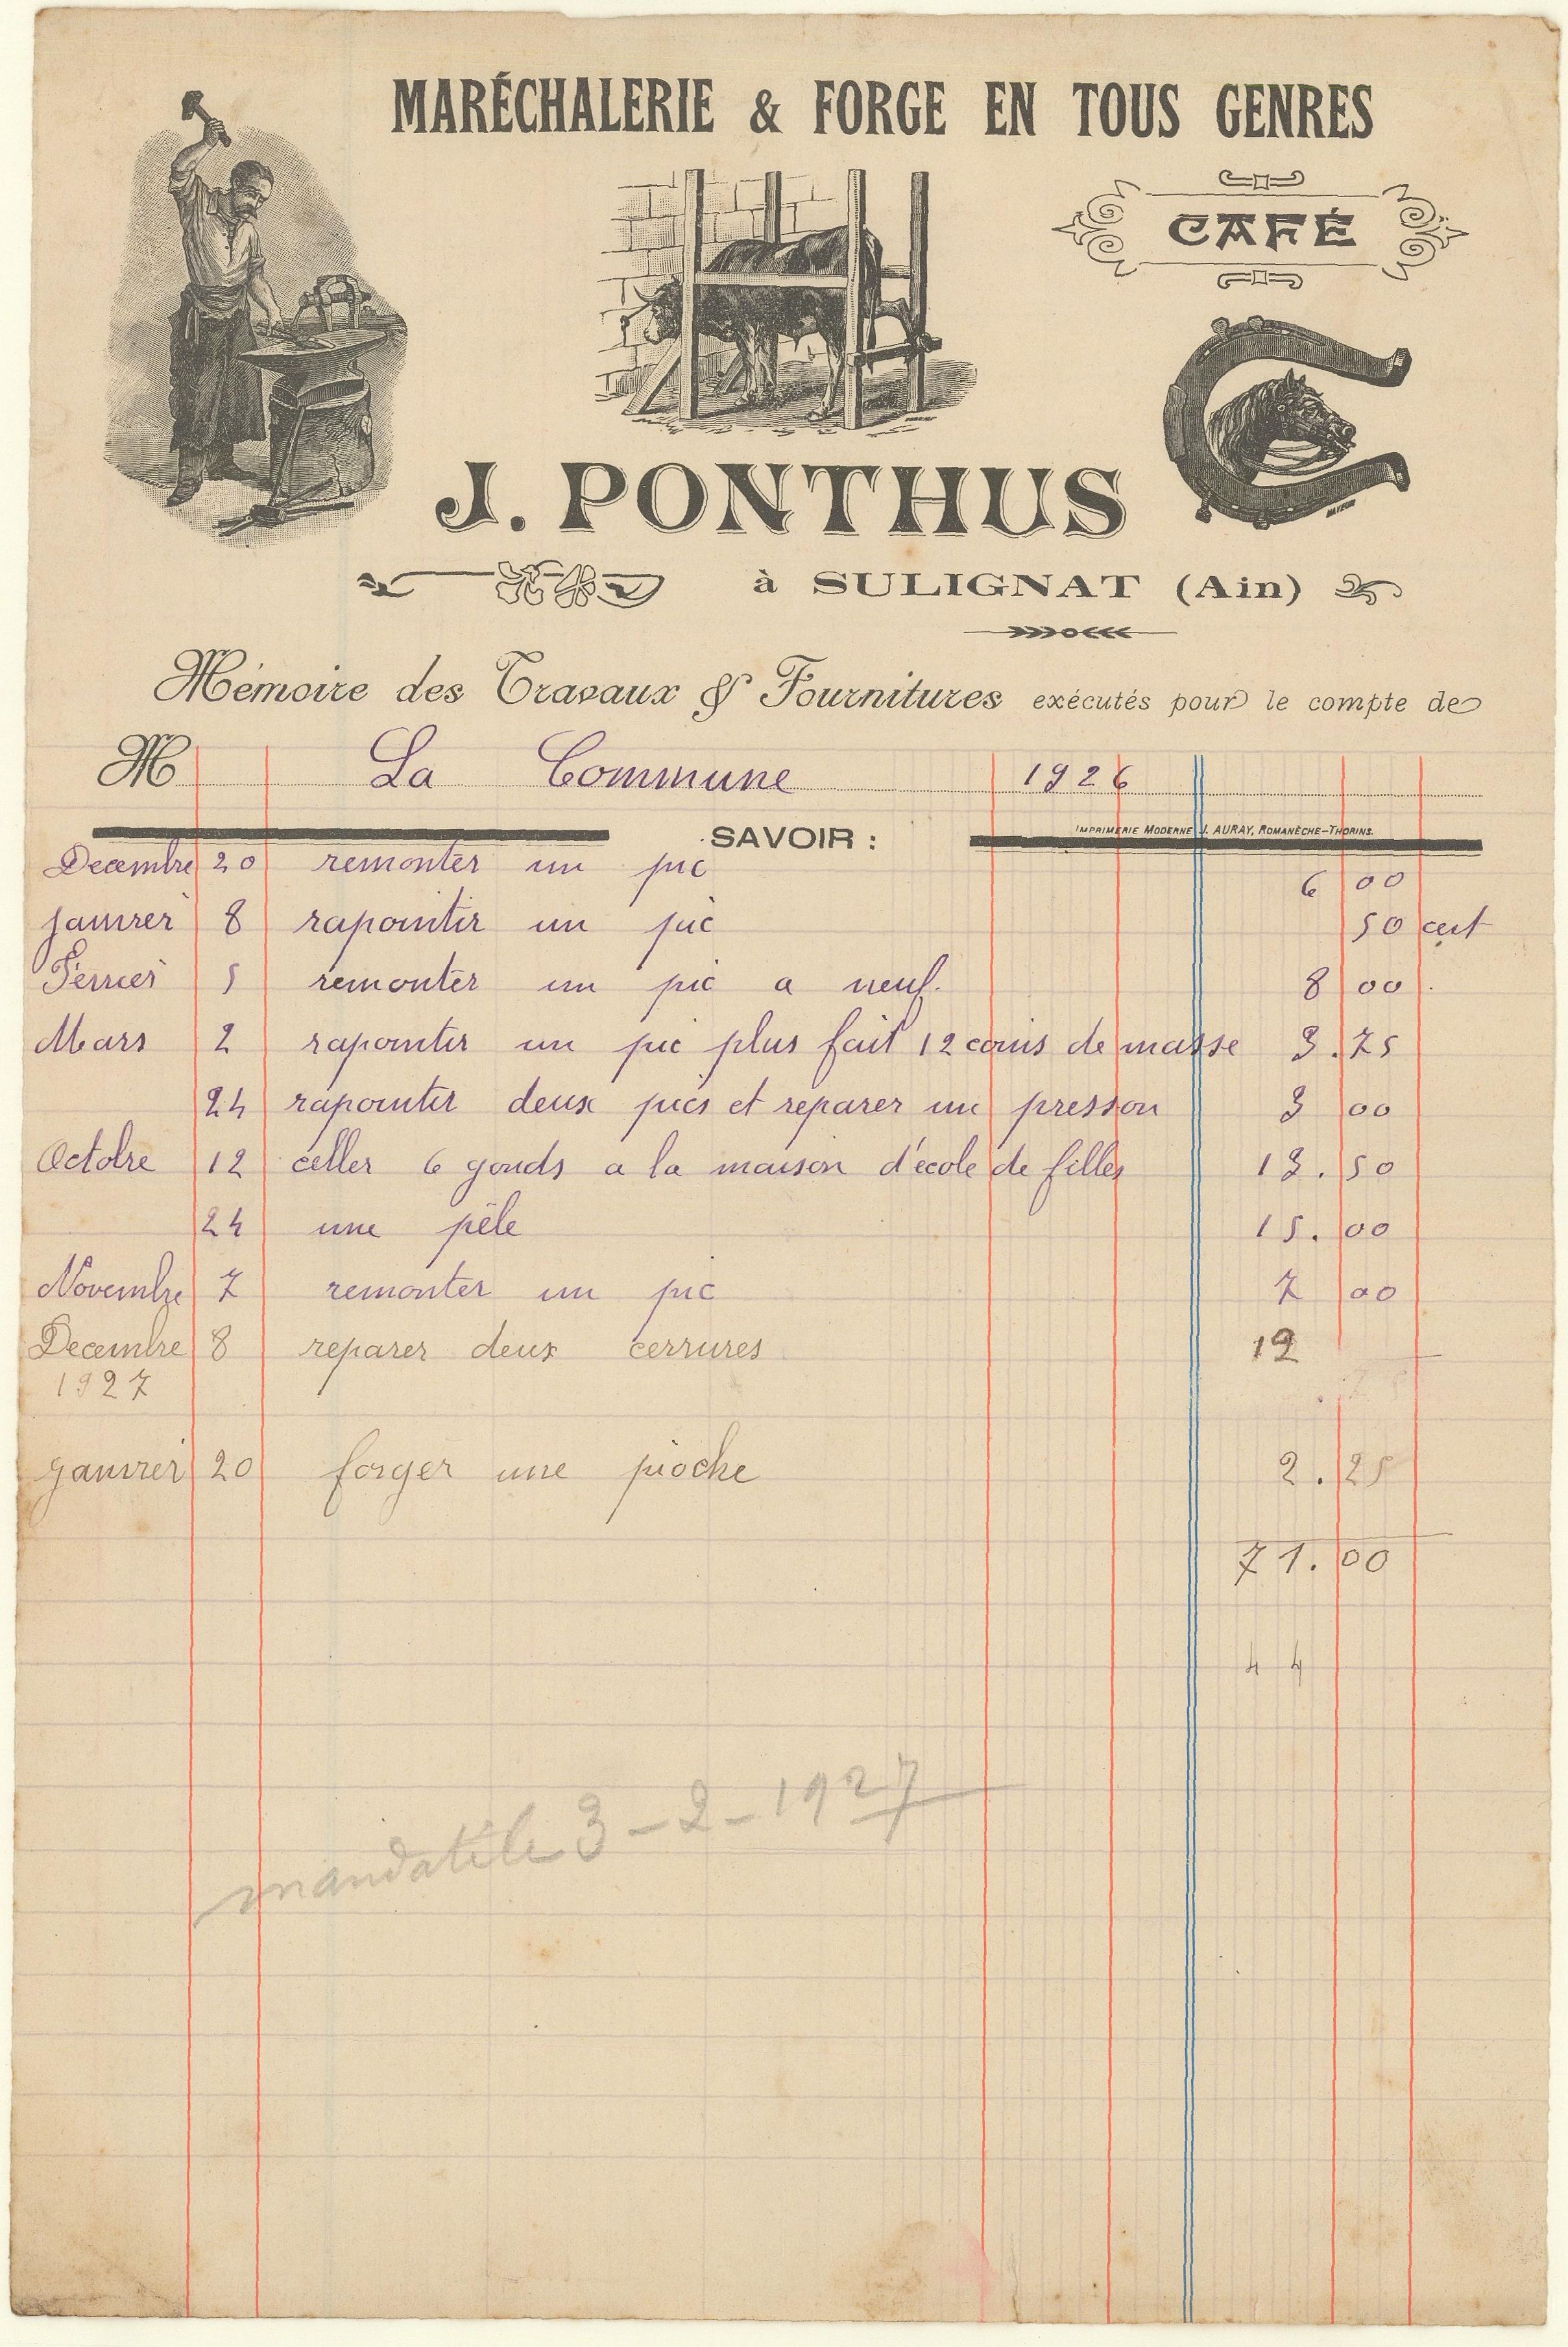 MARÉCHALERIE & FORGE EN TOUS GENRES
CAFÉ
J. PONTHUS
à SULIGNAT (Ain)
Mémoire des Travaux & Fournitures exécutés pour le compte de
M La Commune 1926
SAVOIR :
IMPRIMERIE MODERNE J. AURAY, ROMANÈCHE-THORINS.
Decembre 20 remonter un pic 6 00
janvier 8 rapointir un pic 50 cent
Fevrier 5 remonter un pic a neuf. 8 00
Mars 2 rapointir un pic plus fait 12 coins de masse 3.75
24 rapointir deux pics et reparer un presson 3 00
Octobre 12 celler 6 gonds a la maison d'école de filles 13.50
24 une pêle 15.00
Novembre 7 remonter un pic 7 00
Decembre 8 reparer deux cerrures 12
1927
janvier 20 forger une pioche 2.25
71.00
44
mandaté le 3-2-1927